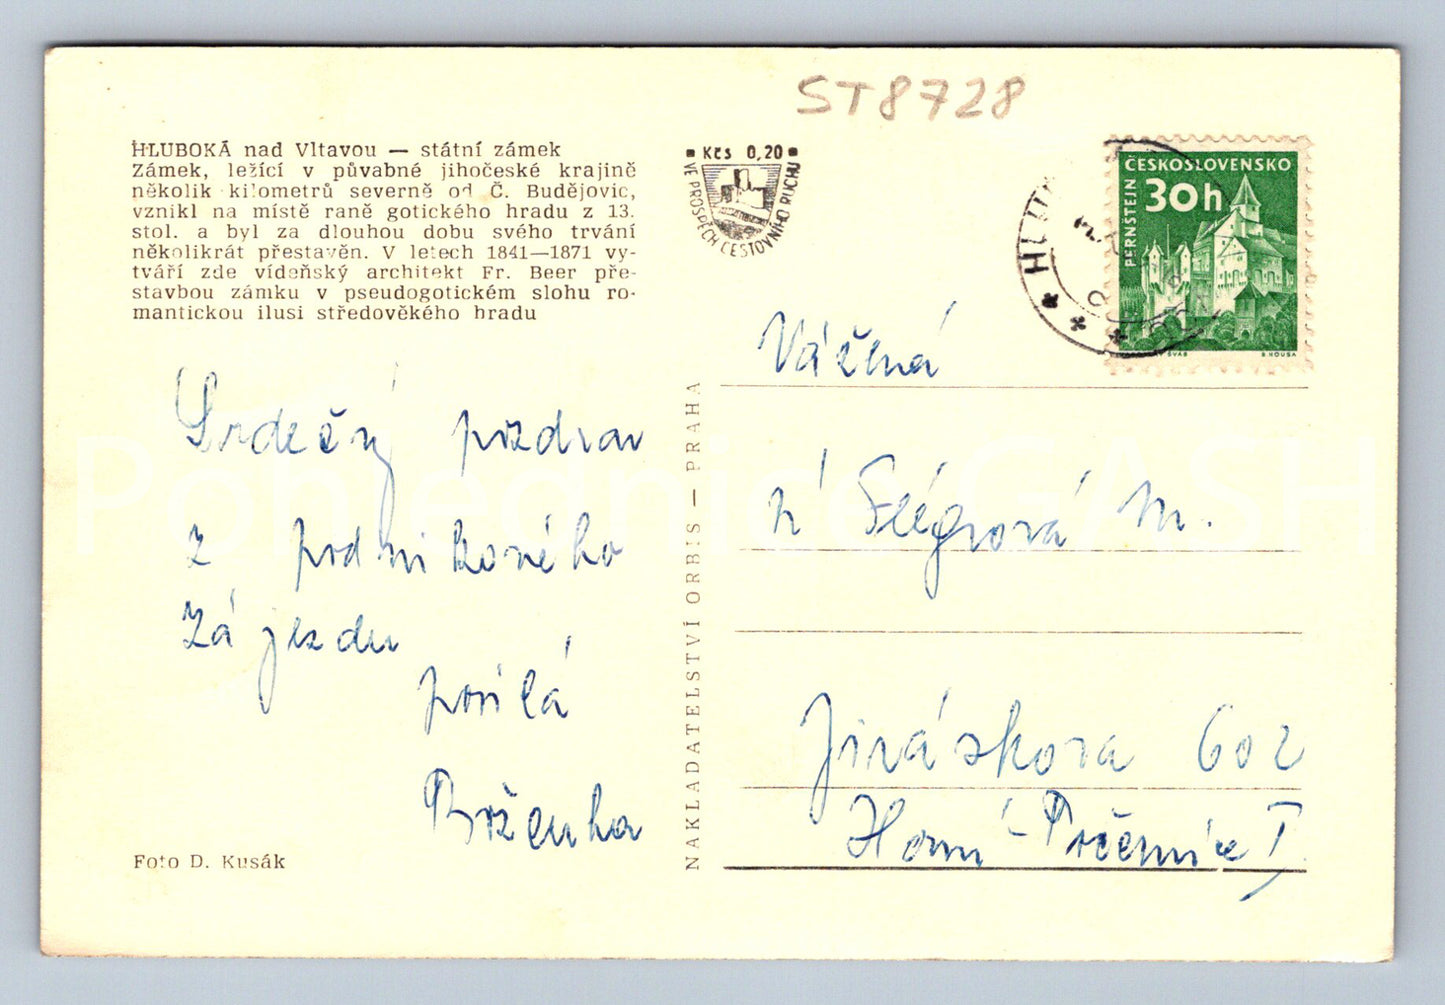 ST8728
HLUBOKÁ nad Vltavou — státní zámek
Zámek, ležící v půvabné jihočeské krajině
několik kilometrů severně od Č. Budějovic,
vznikl na místě raně gotického hradu z 13.
stol. a byl za dlouhou dobu svého trvání
několikrát přestavěn. V letech 1841—1871 vy-
tváří zde vídeňský architekt Fr. Beer pře-
stavbou zámku v pseudogotickém slohu ro-
mantickou ilusi středověkého hradu
Kčs 0,20
VE PROSPĚCH CESTOVNÍHO RUCHU
ČESKOSLOVENSKO
30h
PERNŠTEJN
ŠVÁB B. HOUSA
Srdečný pozdrav
z podnikového
zájezdu
posílá
Boženka
Foto D. Kusák
NAKLADATELSTVÍ ORBIS — PRAHA
Vážená
M.
Jiráskova 602
Horní Počernice I
Pohlednice GASH